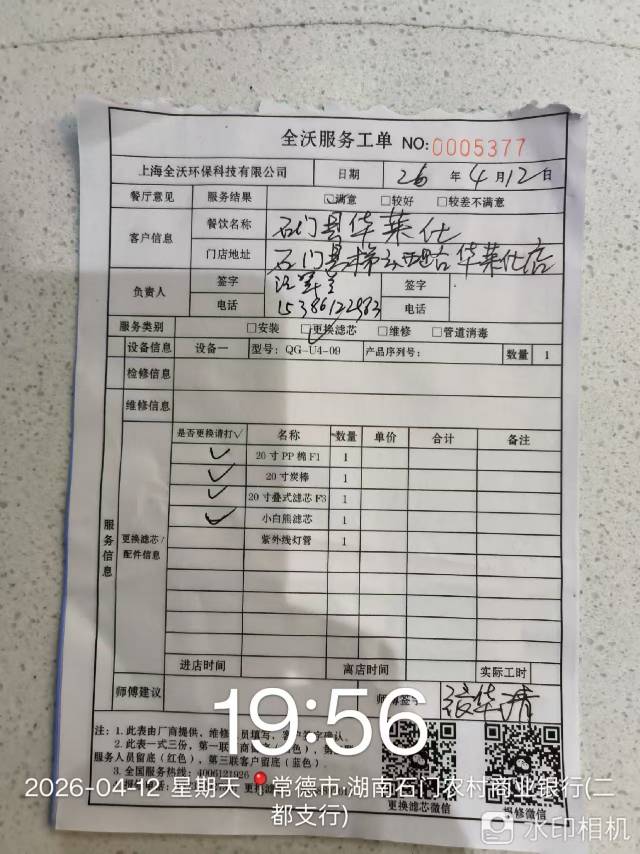 全沃服务工单 NO:0005377
上海全沃环保科技有限公司 日期 26 年 4 月 12 日
餐厅意见 服务结果 ☑满意 □较好 □较差不满意
客户信息 餐饮名称 石门县华莱仕
门店地址 石门县梯云西路华莱仕店
负责人 签字 签字
电话 15386122983 电话
服务类别 □安装 ☑更换滤芯 □维修 □管道消毒
设备信息 设备一 型号: QG-U4-09 产品序列号: 数量 1
检修信息
维修信息
服务信息
更换滤芯/配件信息
是否更换请打√ 名称 数量 单价 合计 备注
✓ 20寸PP棉F1 1
✓ 20寸炭棒 1
✓ 20寸叠式滤芯F3 1
✓ 小白熊滤芯 1
紫外线灯管 1
进店时间 离店时间 实际工时
师傅建议 签字
注: 1. 此表由厂商提供, 维修
2. 此表一式三份, 第一联
服务人员留底(红色), 第三联客户留底(蓝色)。
3. 全国服务热线: 4006121926
更换滤芯微信 报修微信
19:56
2026-04-12 星期天 常德市·湖南石门农村商业银行(二
都支行)
水印相机